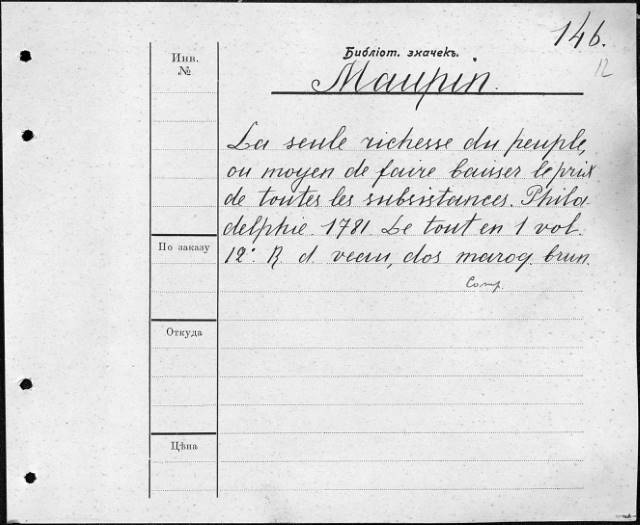 146.
12
Библіот. значекъ.
Инв.
№
Maupin.
La seule richesse du peuple,
ou moyen de faire baisser le prix
de toutes les subsistances. Phila
delphie 1781. Le tout en 1 vol.
12°. R. d. veau, dos maroq. brun.
Comp.
По заказу
Откуда
Цѣна